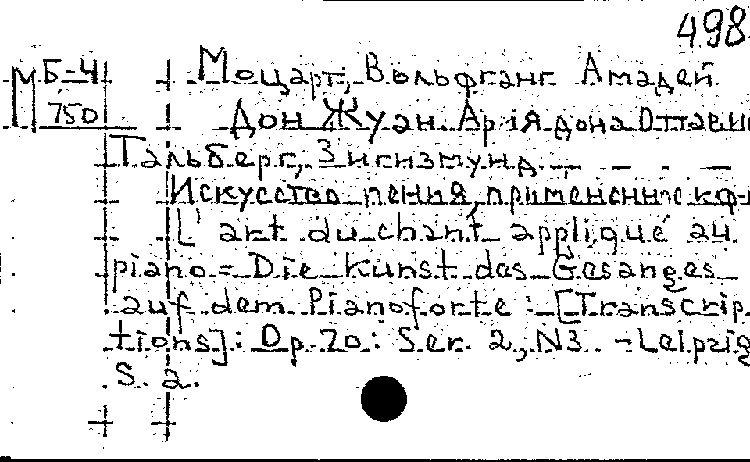 498
Б-4 Моцарт, Вольфганг Амадей
М 750 Дон Жуан. Ария дона Оттавио
Тальберг, Зигизмунд. — — — —
Искусство пения, применение к ф-
L'art du chant appliqué au
piano = Die Kunst des Gesanges
auf dem Pianoforte : [Transcrip
tions] : Op. 70 : Ser. 2, N3. - Leipzig
S. a.